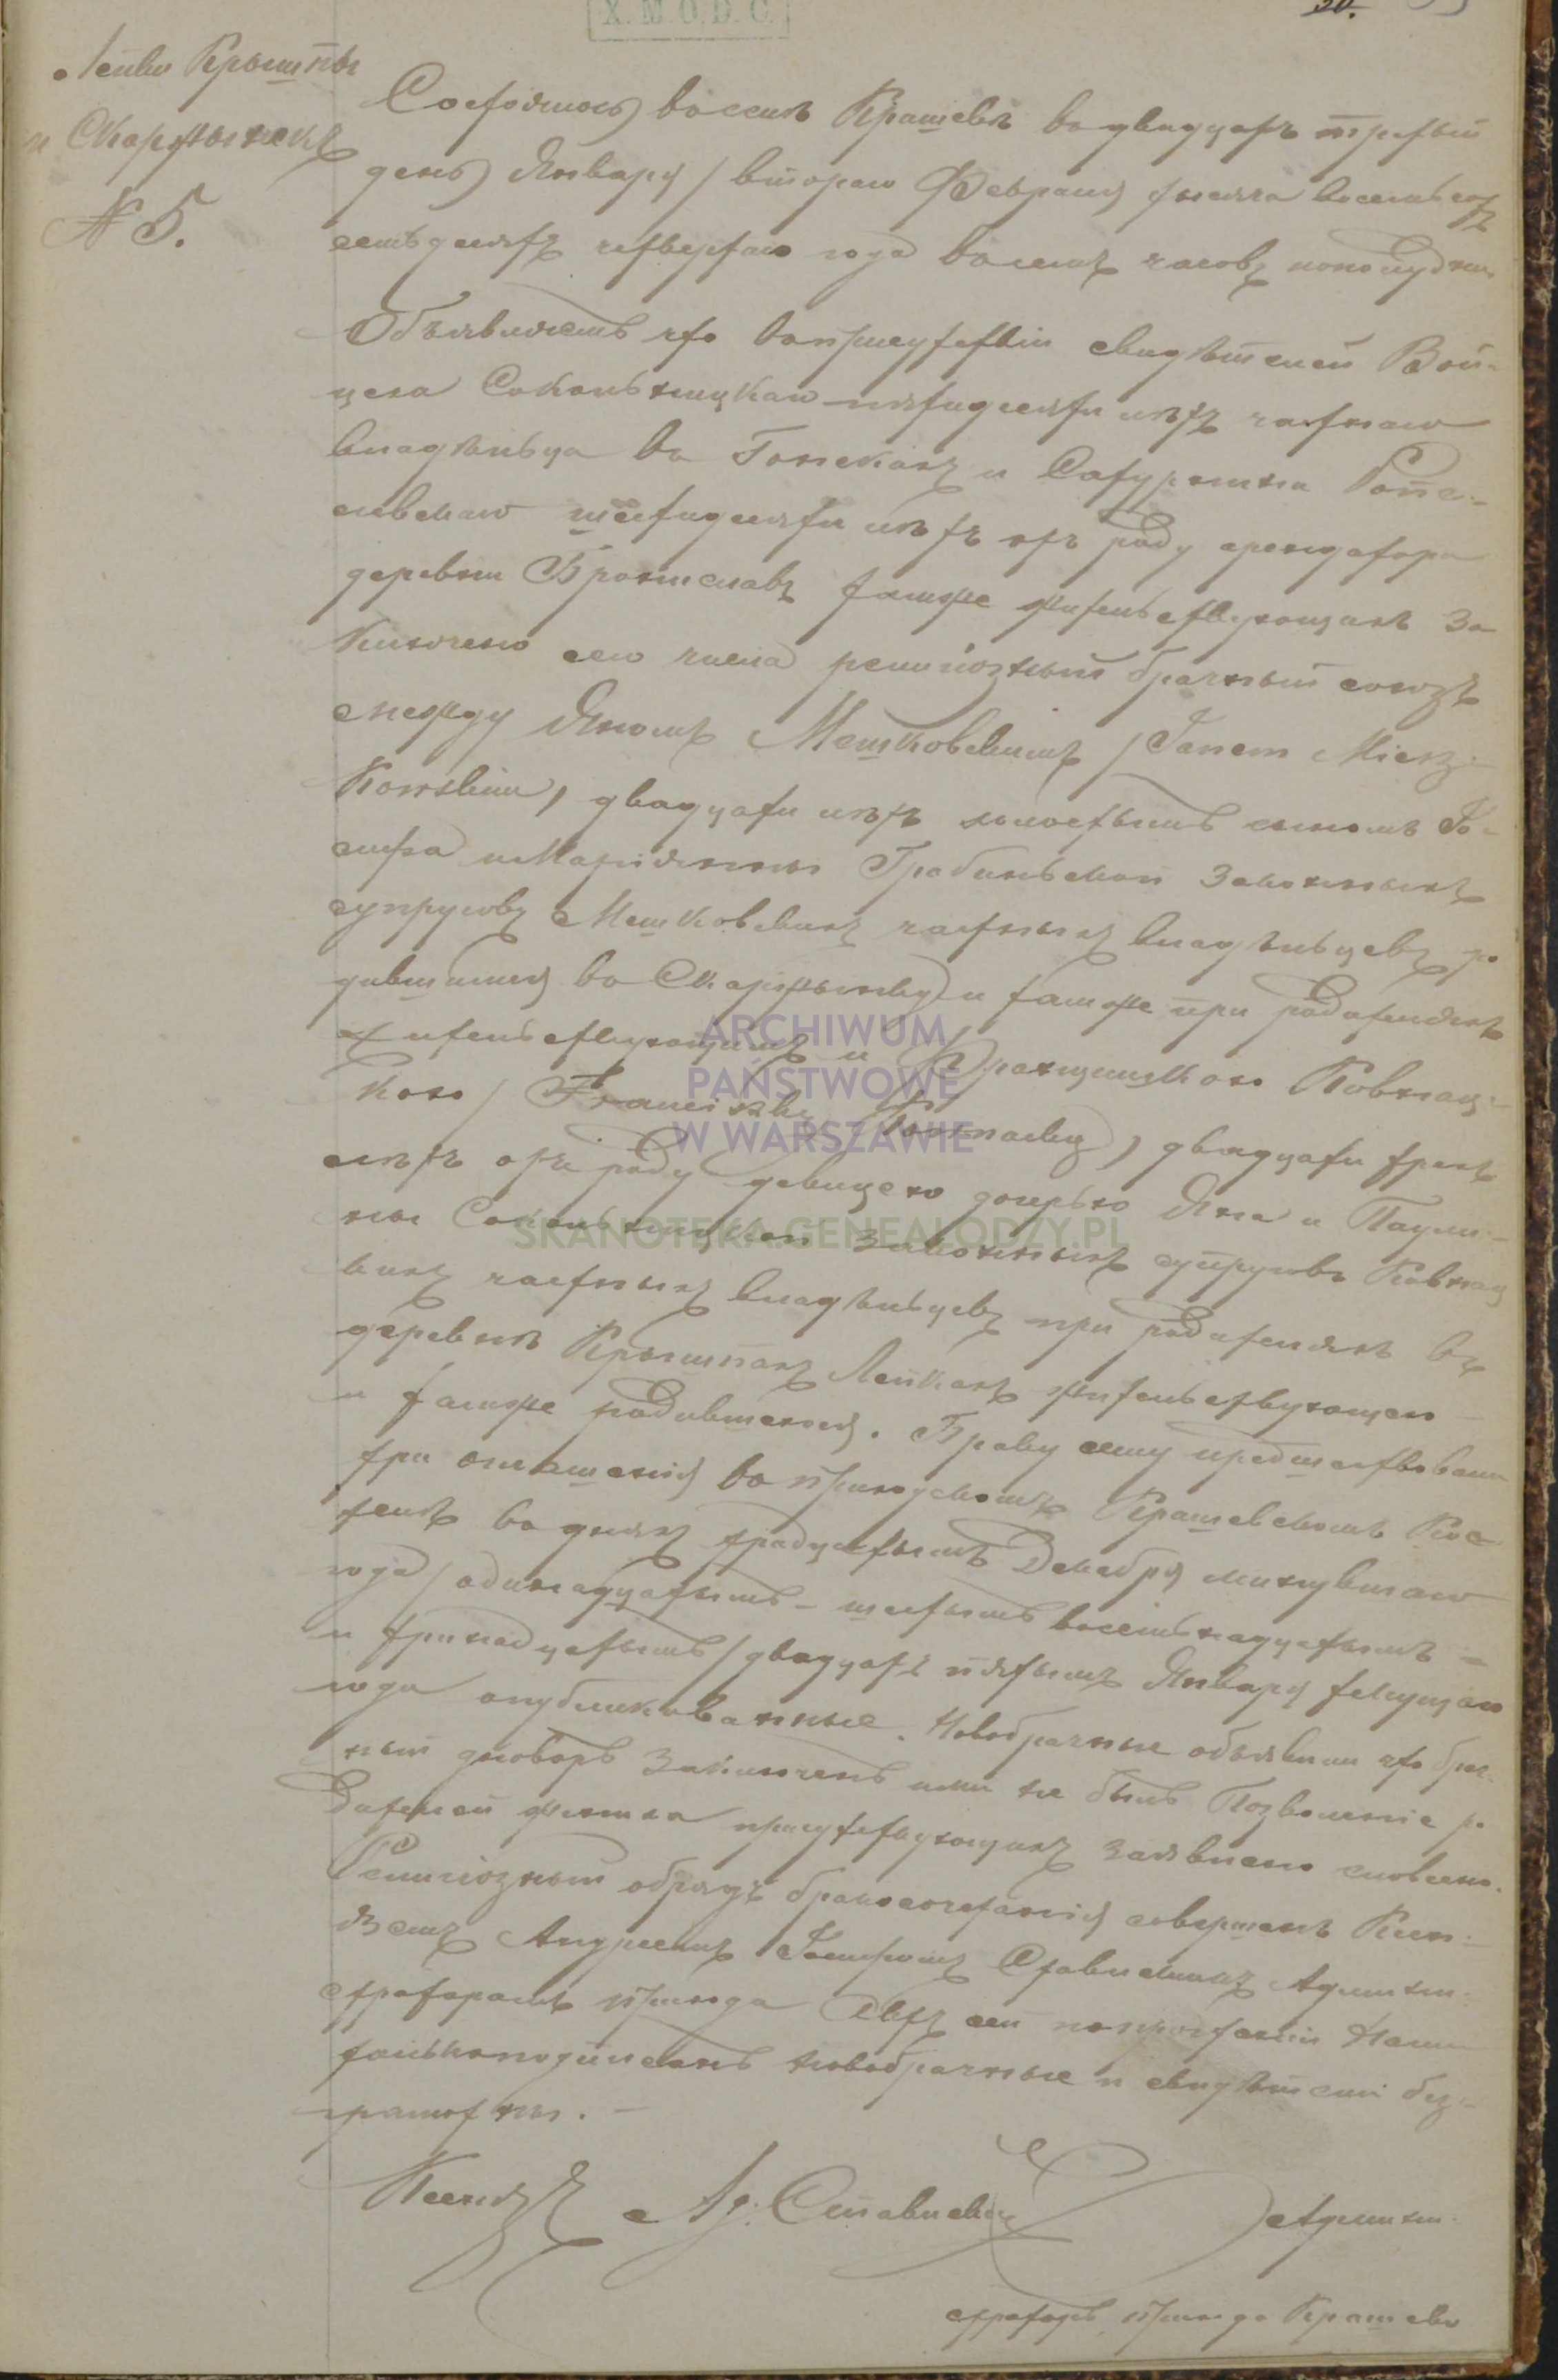 X.M.O.D.C.
30.
Лепки Крышпы
и Скаржынекъ
№ 5.
Состоялось во селѣ Крашевѣ во двадцать третьій
день Января / втораго Февраля тысяча восемьсотъ
семьдесятъ четвертаго года во семъ часовъ пополудни
Объявляемъ что во присутствіи свидѣтелей Вой-
цеха Сокольницкаго пятидесяти лѣтъ частнаго
владѣльца во и Сатурнина
шестидесяти лѣтъ отъ роду арендатора
деревни Брониславъ тамже жительствующихъ За
ключено сего числа религіозный брачный союзъ
между Яномъ Мешковскимъ / Janem Miesz-
kowskim, двадцати лѣтъ холостымъ сыномъ Іо-
сифа и Маріянны Грабиньской Законныхъ
супруговъ Мешковскихъ частныхъ владѣльцевъ ро
дившимся во Скаржынку и тамже при родителяхъ
жительствующимъ и Францишкою Ковнац-
кою / Franciszką Kownacką, двадцати трехъ
лѣтъ отъ роду девицею дочерью Яна и Паули-
ны Сокольницкой Законныхъ супруговъ Ковнац
кихъ частныхъ владѣльцевъ при родителяхъ въ
деревнѣ Крышпахъ Лепкахъ жительствующею
и тамже родившеюся. Браку сему предшествовали
три оглашенія во приходскомъ Крашевскомъ Кос-
телѣ во дняхъ тридцатымъ Декабря минувшаго
года / одинадцатымъ - шестымъ восемьнадцатымъ =
и тринадцатымъ / двадцать пятымъ Января текущаго
года опубликованные. Новобрачные объявили что брач-
ный договоръ Заключенъ ими не былъ Позволеніе ро
дителей жениха присутствующихъ Заявлено словесно.
Религіозный обрядъ бракосочетанія совершенъ Ксен-
дземъ Андреемъ Ставискимъ Админи-
страторомъ прихода Актъ сей по прочтеніи Нами
только подписанъ Новобрачные и свидѣтели без-
грамотны. —
Ксендзъ Ад. Ставискій Админи-
страторъ прихода Крашево
ARCHIWUM
PAŃSTWOWE
W WARSZAWIE
SKANOTEKA.GENEALODZY.PL